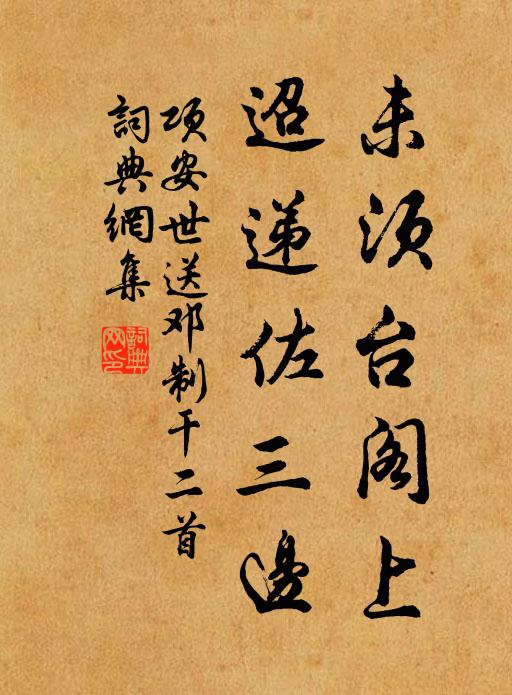 未须台阁上
迢递佐三邊
项安世送邓制干二首
詞典網集
詞典
网印